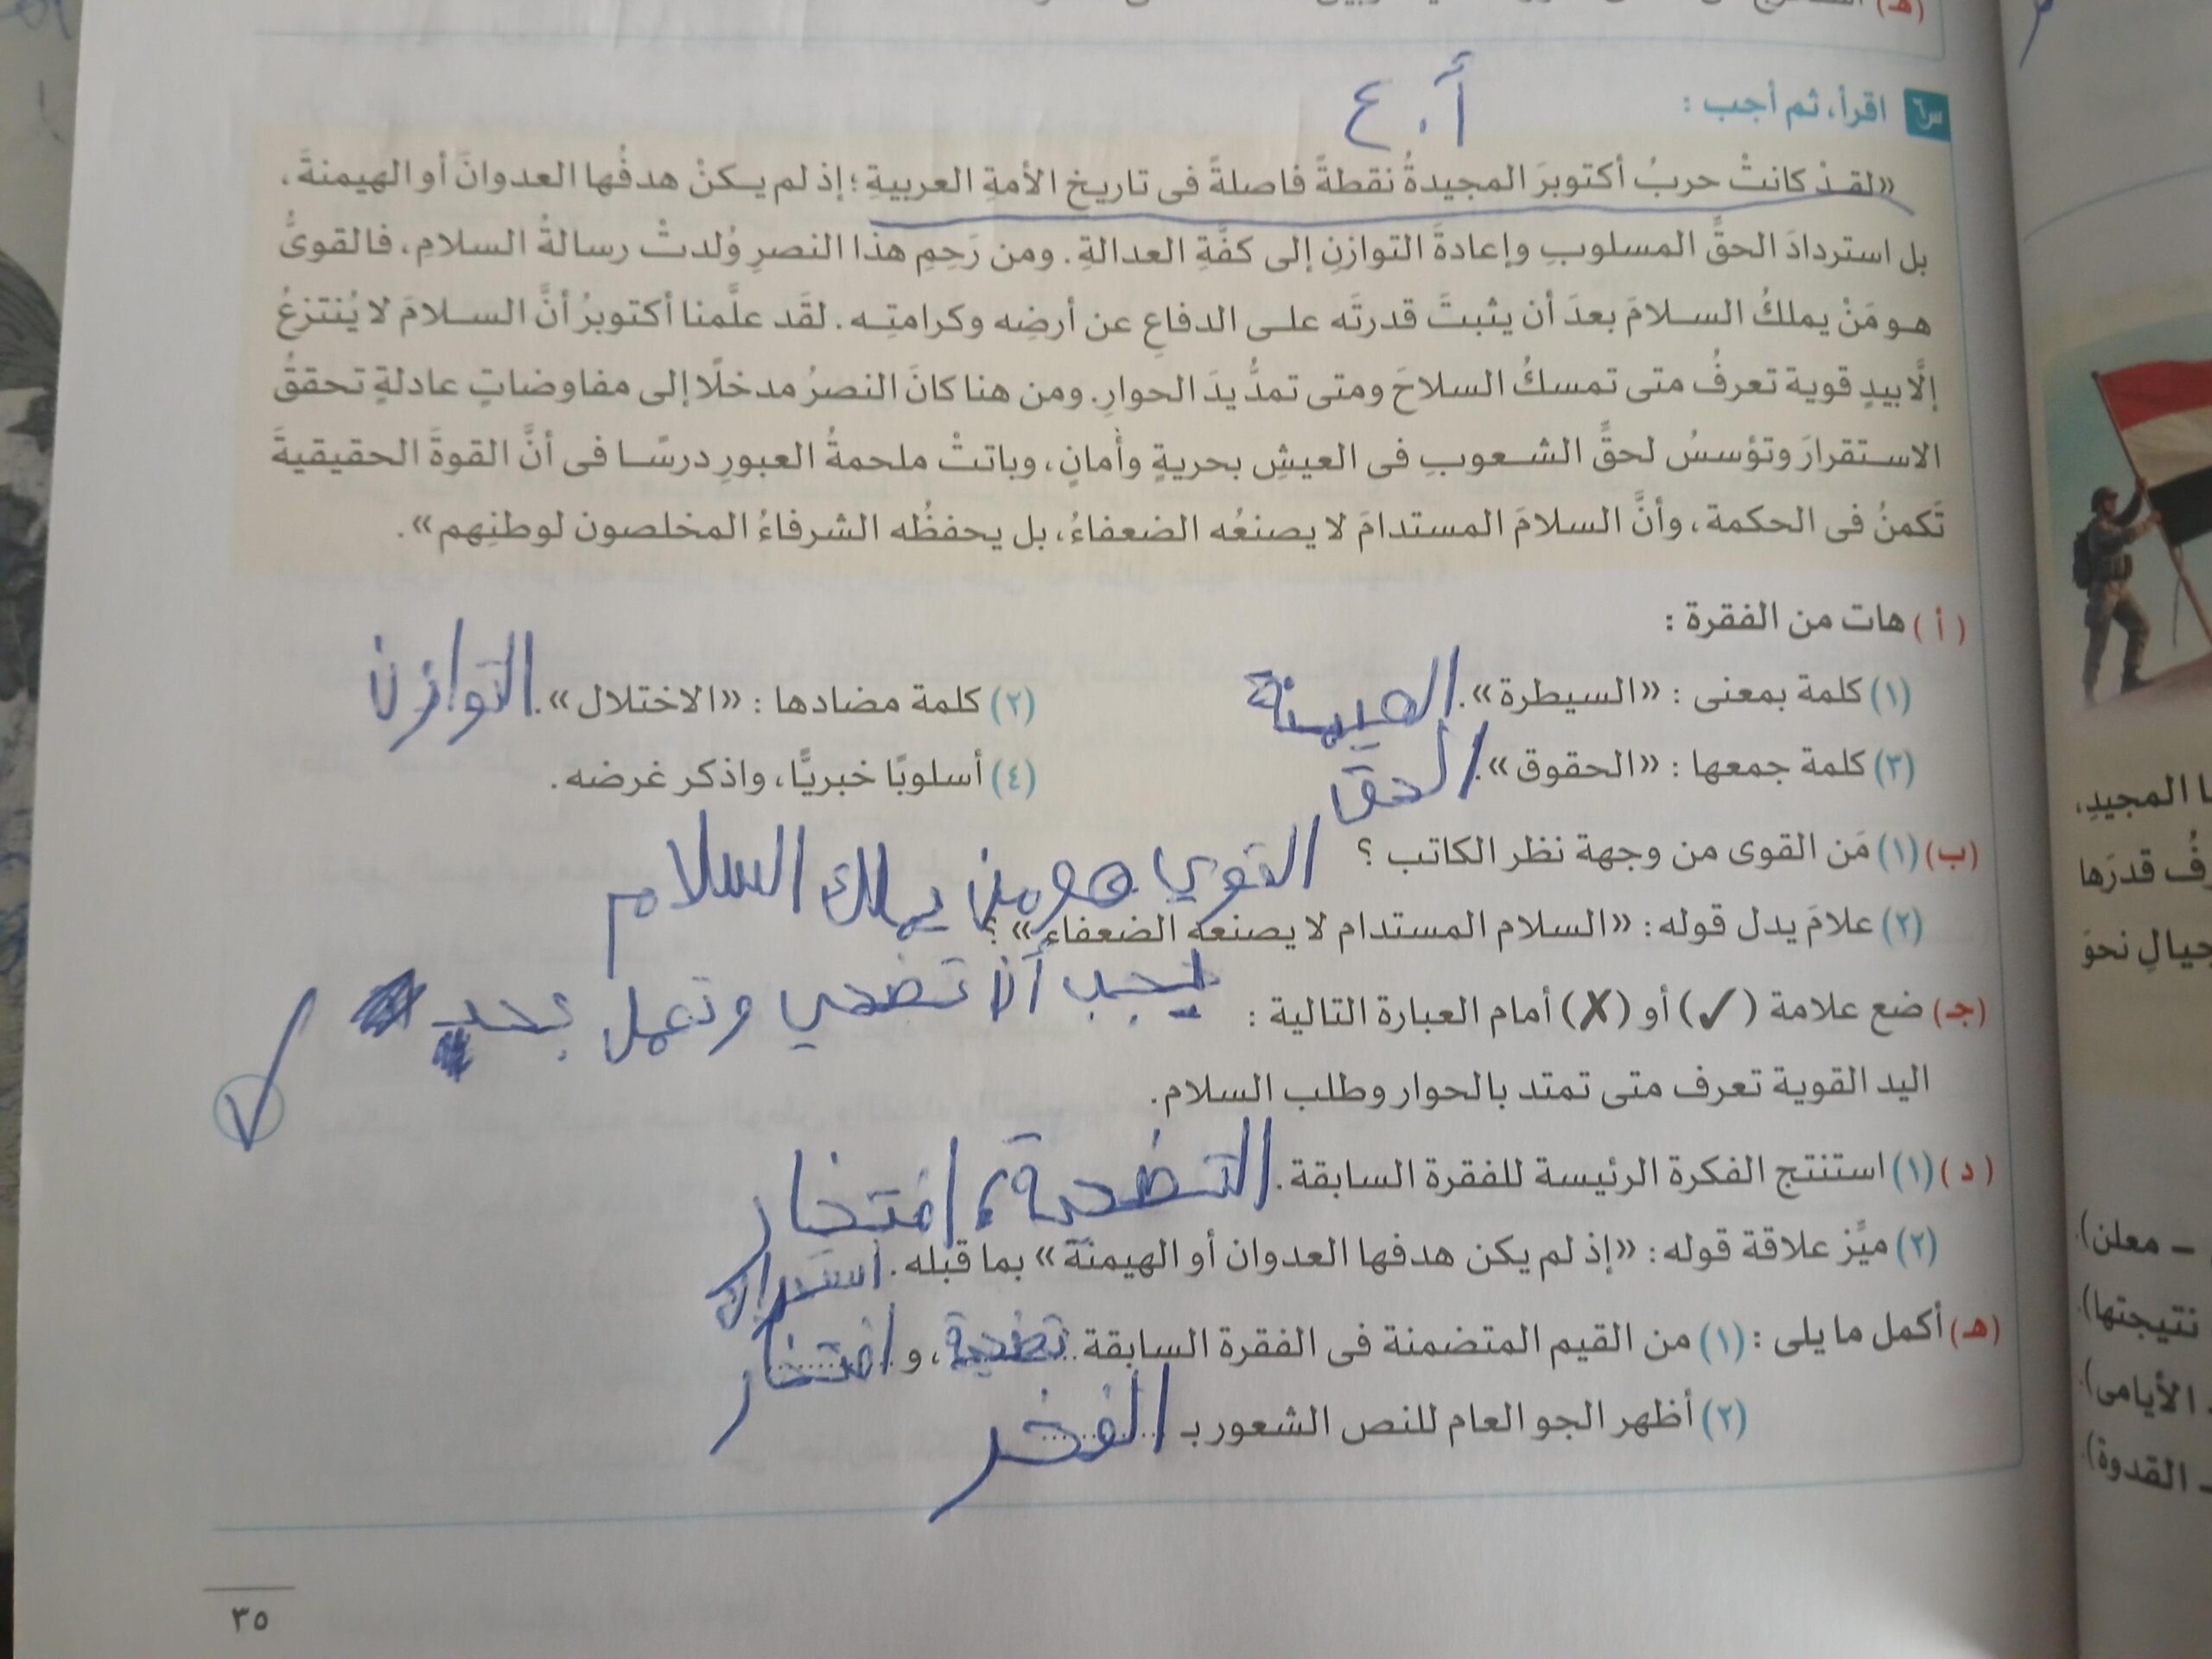 س٦ اقرأ، ثم أجب :
أ. ٤
«لقدْ كانتْ حربُ أكتوبرَ المجيدةُ نقطةً فاصلةً فى تاريخِ الأمةِ العربيةِ؛ إذ لم يكنْ هدفُها العدوانَ أو الهيمنةَ،
بل استردادَ الحقِّ المسلوبِ وإعادةَ التوازنِ إلى كفَّةِ العدالةِ. ومن رَحِمِ هذا النصرِ وُلدتْ رسالةُ السلامِ، فالقوىُّ
هو مَنْ يملكُ السلامَ بعدَ أن يثبتَ قدرتَه على الدفاعِ عن أرضِه وكرامتِه. لقَد علَّمنا أكتوبرُ أنَّ السلامَ لا يُنتزعُ
إلَّا بيدٍ قوية تعرفُ متى تمسكُ السلاحَ ومتى تمدُّ يدَ الحوارِ. ومن هنا كانَ النصرُ مدخلًا إلى مفاوضاتٍ عادلةٍ تحققُ
الاستقرارَ وتؤسسُ لحقِّ الشعوبِ فى العيشِ بحريةٍ وأمانٍ، وباتتْ ملحمةُ العبورِ درسًا فى أنَّ القوةَ الحقيقيةَ
تَكمنُ فى الحكمة، وأنَّ السلامَ المستدامَ لا يصنعُه الضعفاءُ، بل يحفظُه الشرفاءُ المخلصون لوطنِهم».
(أ) هات من الفقرة :
(١) كلمة بمعنى : «السيطرة». الهيمنة
(٢) كلمة مضادها : «الاختلال». التوازن
(٣) كلمة جمعها : «الحقوق». الحق
(٤) أسلوبًا خبريًّا، واذكر غرضه.
(ب) (١) مَن القوى من وجهة نظر الكاتب ؟ القوي هو من يملك السلام
(٢) علامَ يدل قوله : «السلام المستدام لا يصنعه الضعفاء» ؟
يجب أن تضحي وتعمل بجد
(جـ) ضع علامة (✓) أو (✗) أمام العبارة التالية :
اليد القوية تعرف متى تمتد بالحوار وطلب السلام. ✓
(د) (١) استنتج الفكرة الرئيسة للفقرة السابقة. التضحية، افتخار
(٢) ميِّز علاقة قوله : «إذ لم يكن هدفها العدوان أو الهيمنة» بما قبله.
(هـ) أكمل ما يلى : (١) من القيم المتضمنة فى الفقرة السابقة تضحية، و افتخار
(٢) أظهر الجو العام للنص الشعور بـ الفخر
٣٥
ا المجيدِ،
فُ قدرَها
جيالِ نحوَ
– معلن).
نتيجتها).
الأيامى).
القدوة).